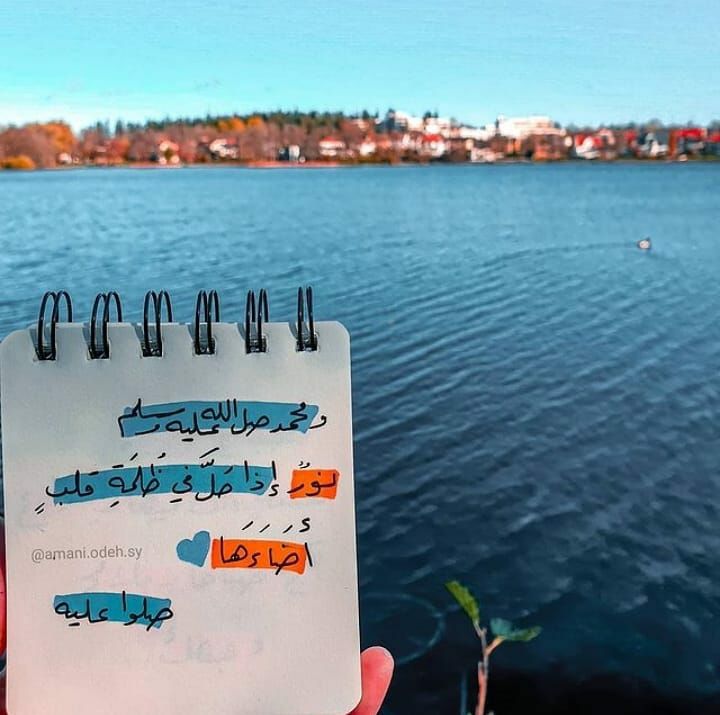 ومحمد صل الله عليه وسلم
نورٌ إذا حَلَّ في ظُلمَةِ قلبٍ
أَضَاءَها
@amani.odeh.sy
صلوا عليه